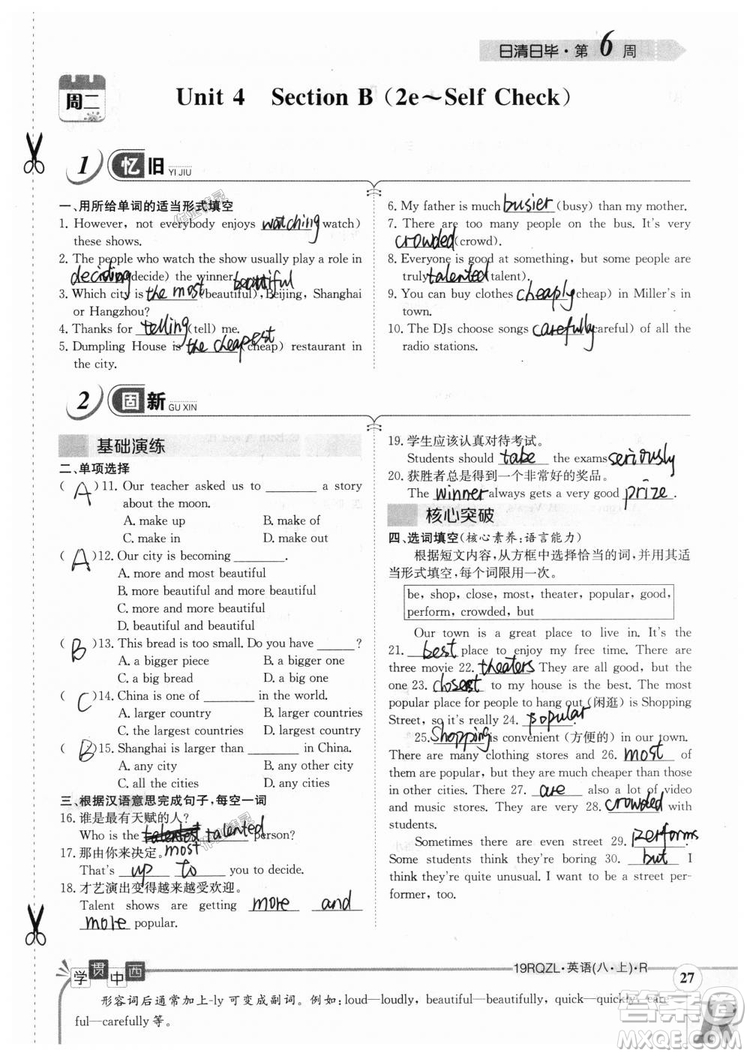 日清日毕·第6周
周二
Unit 4 Section B（2e～Self Check）
1 忆旧 YI JIU
一、用所给单词的适当形式填空
1. However, not everybody enjoys watching(watch)
these shows.
2. The people who watch the show usually play a role in
deciding(decide) the winner.
3. Which city is the most beautiful (beautiful), Beijing, Shanghai
or Hangzhou?
4. Thanks for telling (tell) me.
5. Dumpling House is the cheapest(cheap) restaurant in
the city.
6. My father is much busier (busy) than my mother.
7. There are too many people on the bus. It's very
crowded(crowd).
8. Everyone is good at something, but some people are
truly talented(talent).
9. You can buy clothes cheaply(cheap) in Miller's in
town.
10. The DJs choose songs carefully(careful) of all the
radio stations.
2 固新 GU XIN
基础演练
二、单项选择
( A )11. Our teacher asked us to ________ a story
about the moon.
A. make up B. make of
C. make in D. make out
( A )12. Our city is becoming ________.
A. more and more beautiful
B. more and most beautiful
C. more beautiful and more
D. beautiful and beautiful
( B )13. This bread is too small. Do you have ________?
A. a bigger piece B. a bigger one
C. a big bread D. a big one
( C )14. China is one of ________ in the world.
A. larger country B. larger countries
C. the largest countries D. largest country
( B )15. Shanghai is larger than ________ in China.
A. any city B. any other city
C. all the cities D. other city
三、根据汉语意思完成句子，每空一词
16. 谁是最有天赋的人？
Who is the most talented person?
17. 那由你来决定。
That's up to you to decide.
18. 才艺演出变得越来越受欢迎。
Talent shows are getting more and
more popular.
19. 学生应该认真对待考试。
Students should take the exams seriously
20. 获胜者总是得到一个非常好的奖品。
The winner always gets a very good prize.
核心突破
四、选词填空(核心素养:语言能力)
根据短文内容，从方框中选择恰当的词，并用其适
当形式填空，每个词限用一次。
be, shop, close, most, theater, popular, good,
perform, crowded, but
Our town is a great place to live in. It's the
21. best place to enjoy my free time. There are
three movie 22. theaters They are all good, but the
one 23. closest to my house is the best. The most
popular place for people to hang out (闲逛) is Shopping
Street, so it's really 24. popular
25. Shopping is convenient (方便的) in our town.
There are many clothing stores and 26. most of
them are popular. There 27. are also a lot of video
and music stores. They are 28. crowded with many
people after work.
Sometimes there are even street 29. performs
Some students think they're boring 30. but I
think they're quite unusual. I want to be a street per-
former.
学贯中西
形容词后通常加上-ly可变成副词。例如:loud—loudly, beautiful—beautifully, quick—quickly, care-
ful—carefully等。
19RQZL·英语(八·上)·R
27